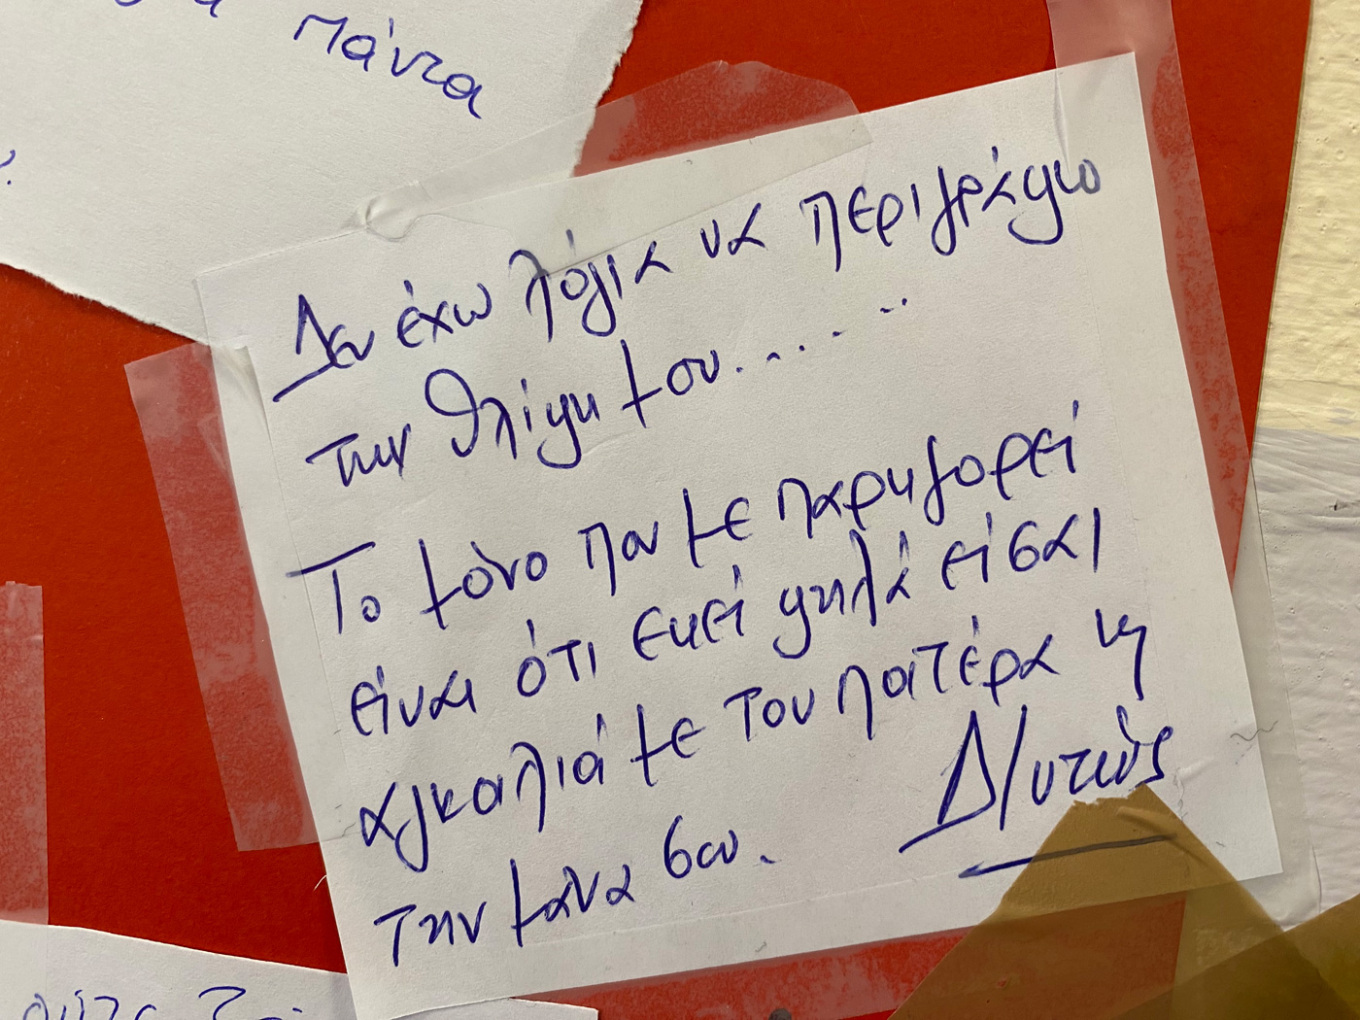 πάντα
Δεν έχω λόγια να περιγράψω
την θλίψη μου........
Το μόνο που με παρηγορεί
είναι ότι εκεί ψηλά είσαι
αγκαλιά με τον πατέρα κ
την μάνα σου.